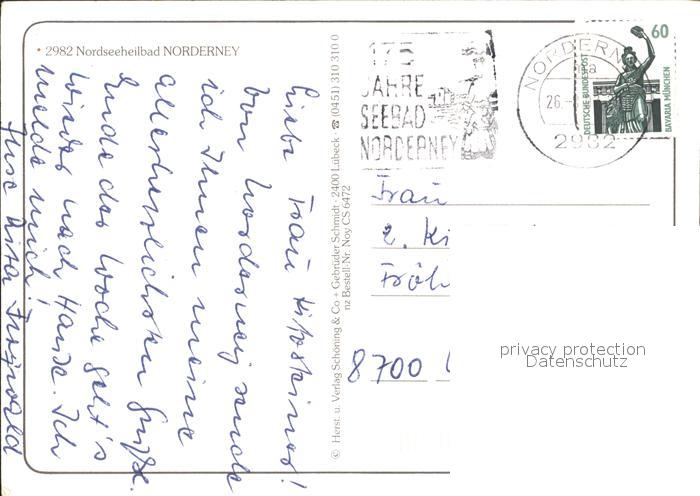 • 2982 Nordseeheilbad NORDERNEY
Liebe Frau
Von Norderney sende
ich Ihnen meine
allerherzlichsten Grüße.
Ende der Woche geht's
wieder nach Hause. Ich
melde mich!
Ihre
© Herst. u. Verlag Schöning & Co + Gebrüder Schmidt · 2400 Lübeck · ☎ (0451) 310 310 0
nz Bestell-Nr. Noy CS 6472
175
JAHRE
SEEBAD
NORDERNEY
NORDERN
2982
60
DEUTSCHE BUNDESPOST
BAVARIA MÜNCHEN
Frau
2. Ki
Fröh
8700
privacy protection
Datenschutz